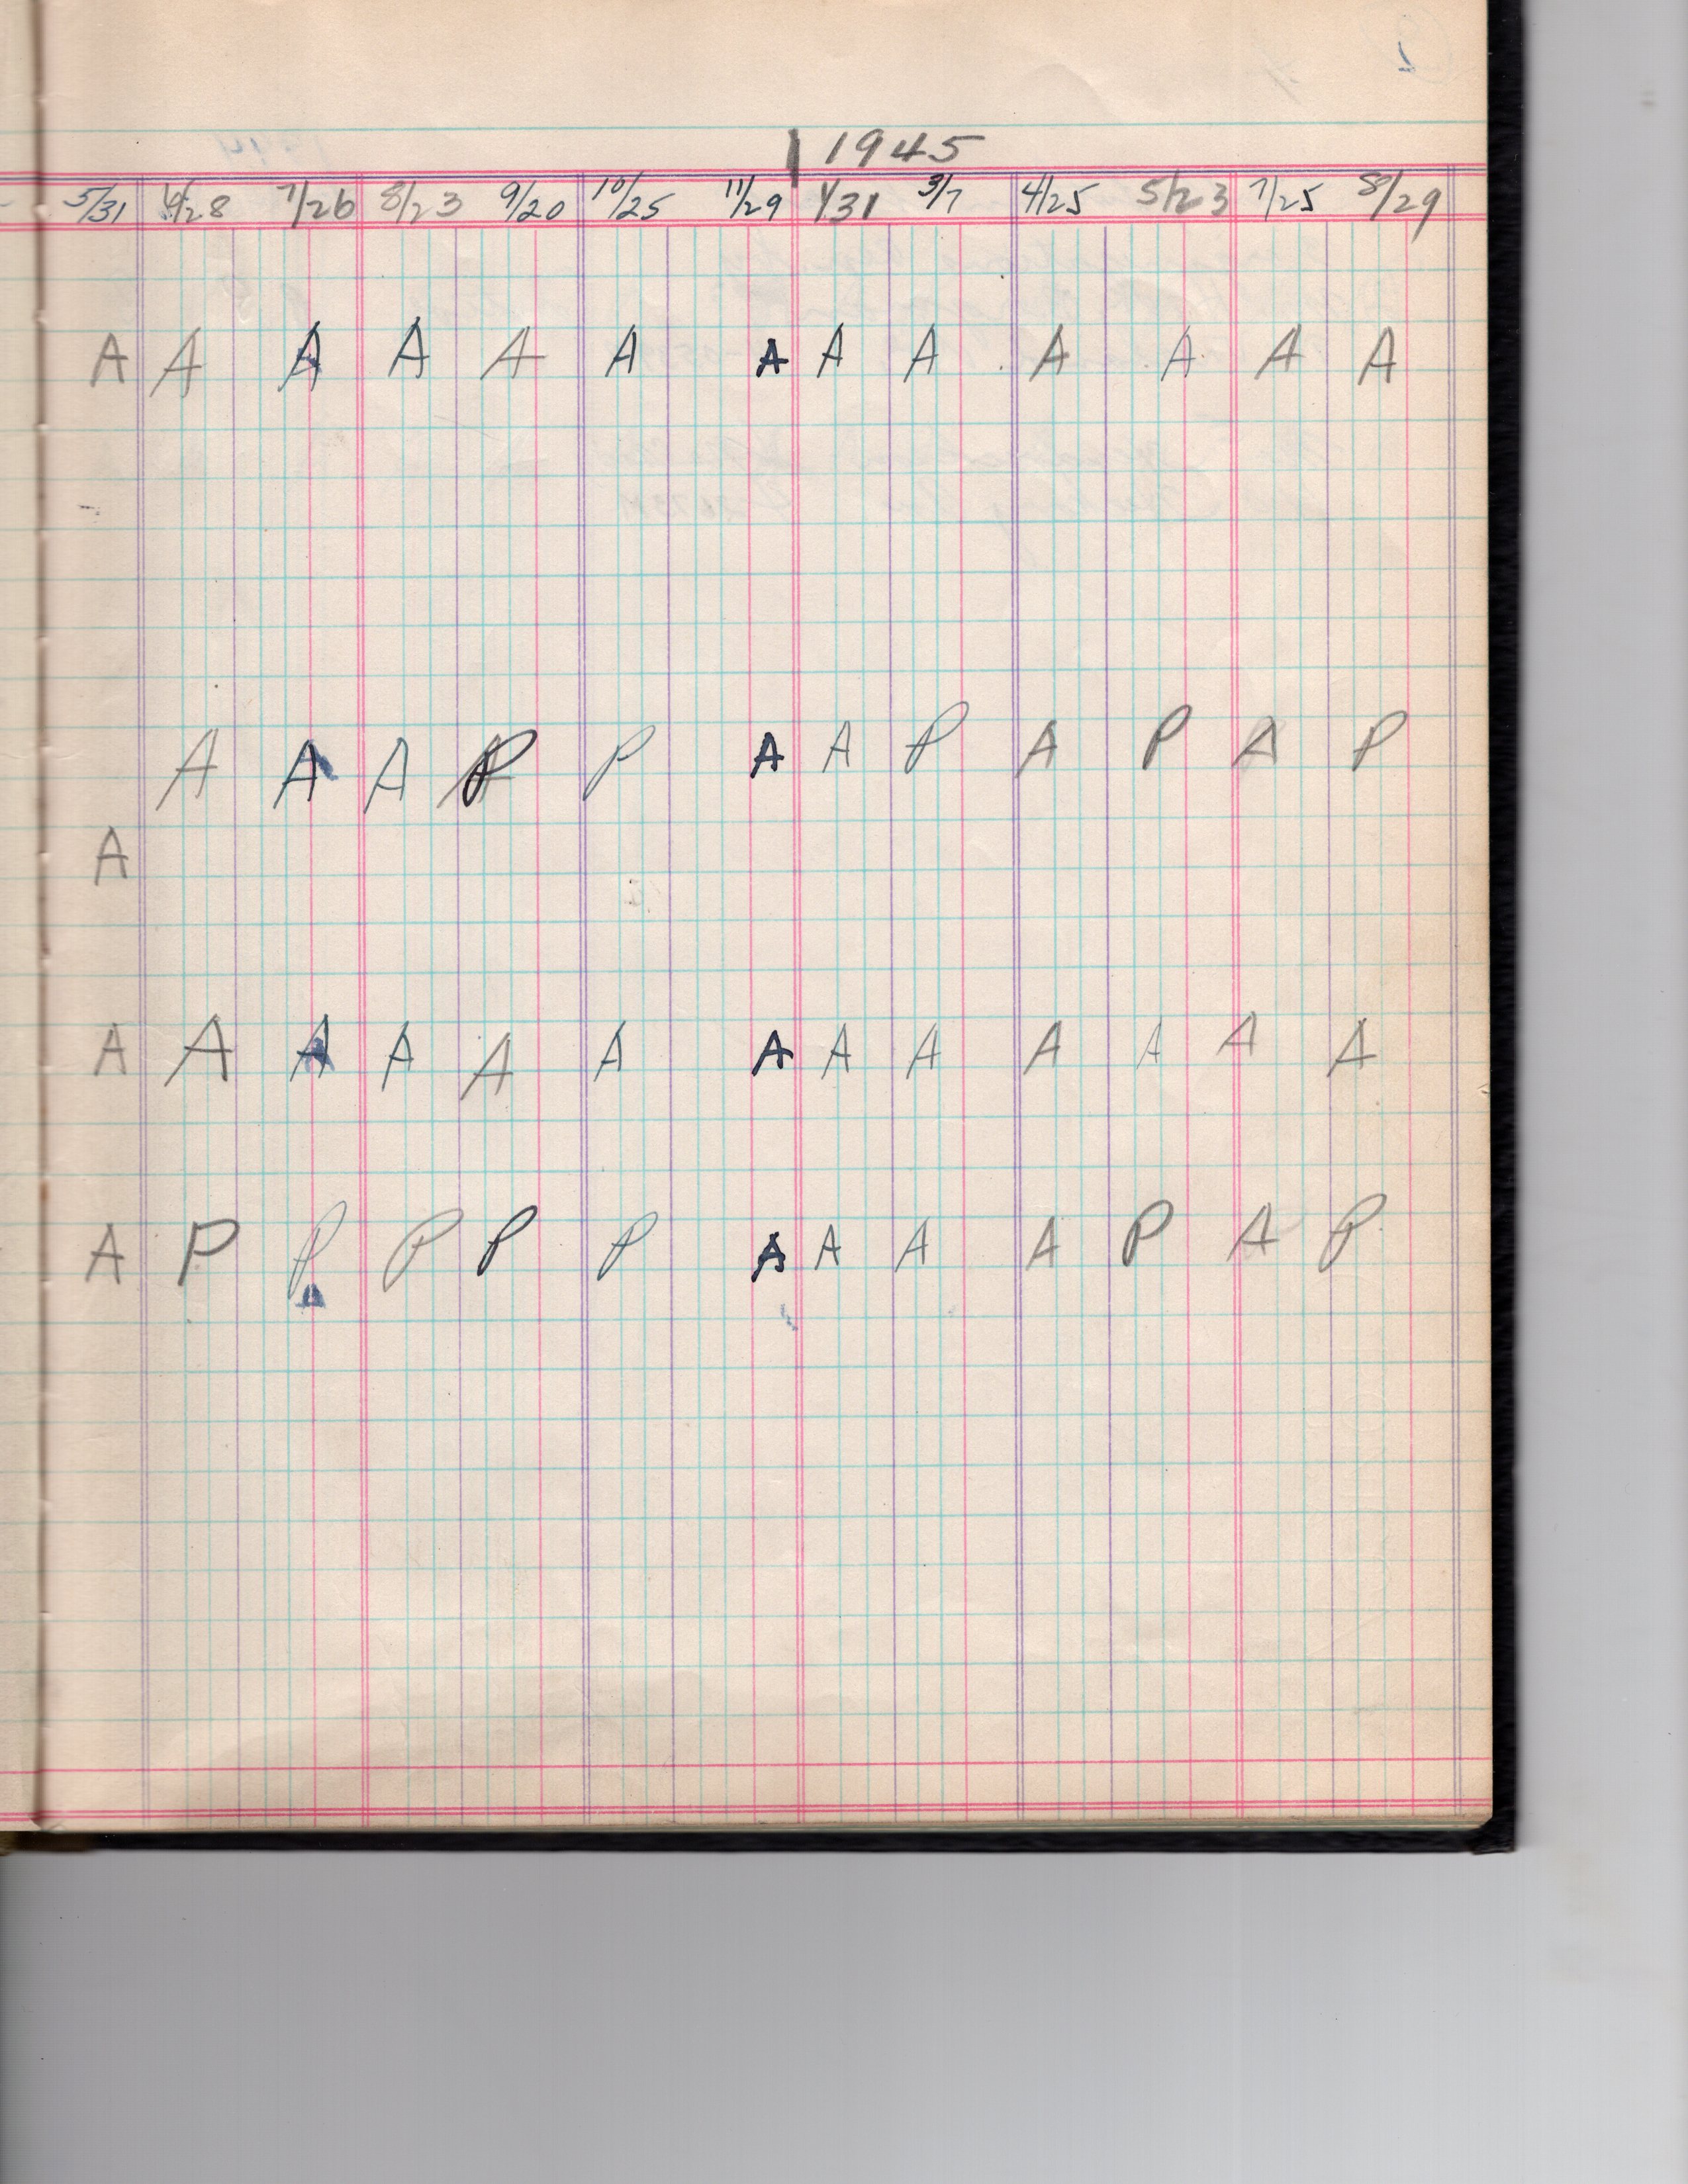 1945
5/31 6/28 7/26 8/23 9/20 10/25 11/29 1/31 3/7 4/25 5/23 7/25 8/29
A A A A A A A A A A A A A
A A A P P A A P A P A P
A
A A A A A A A A A A A A A
A P P P P P A A A A P A P